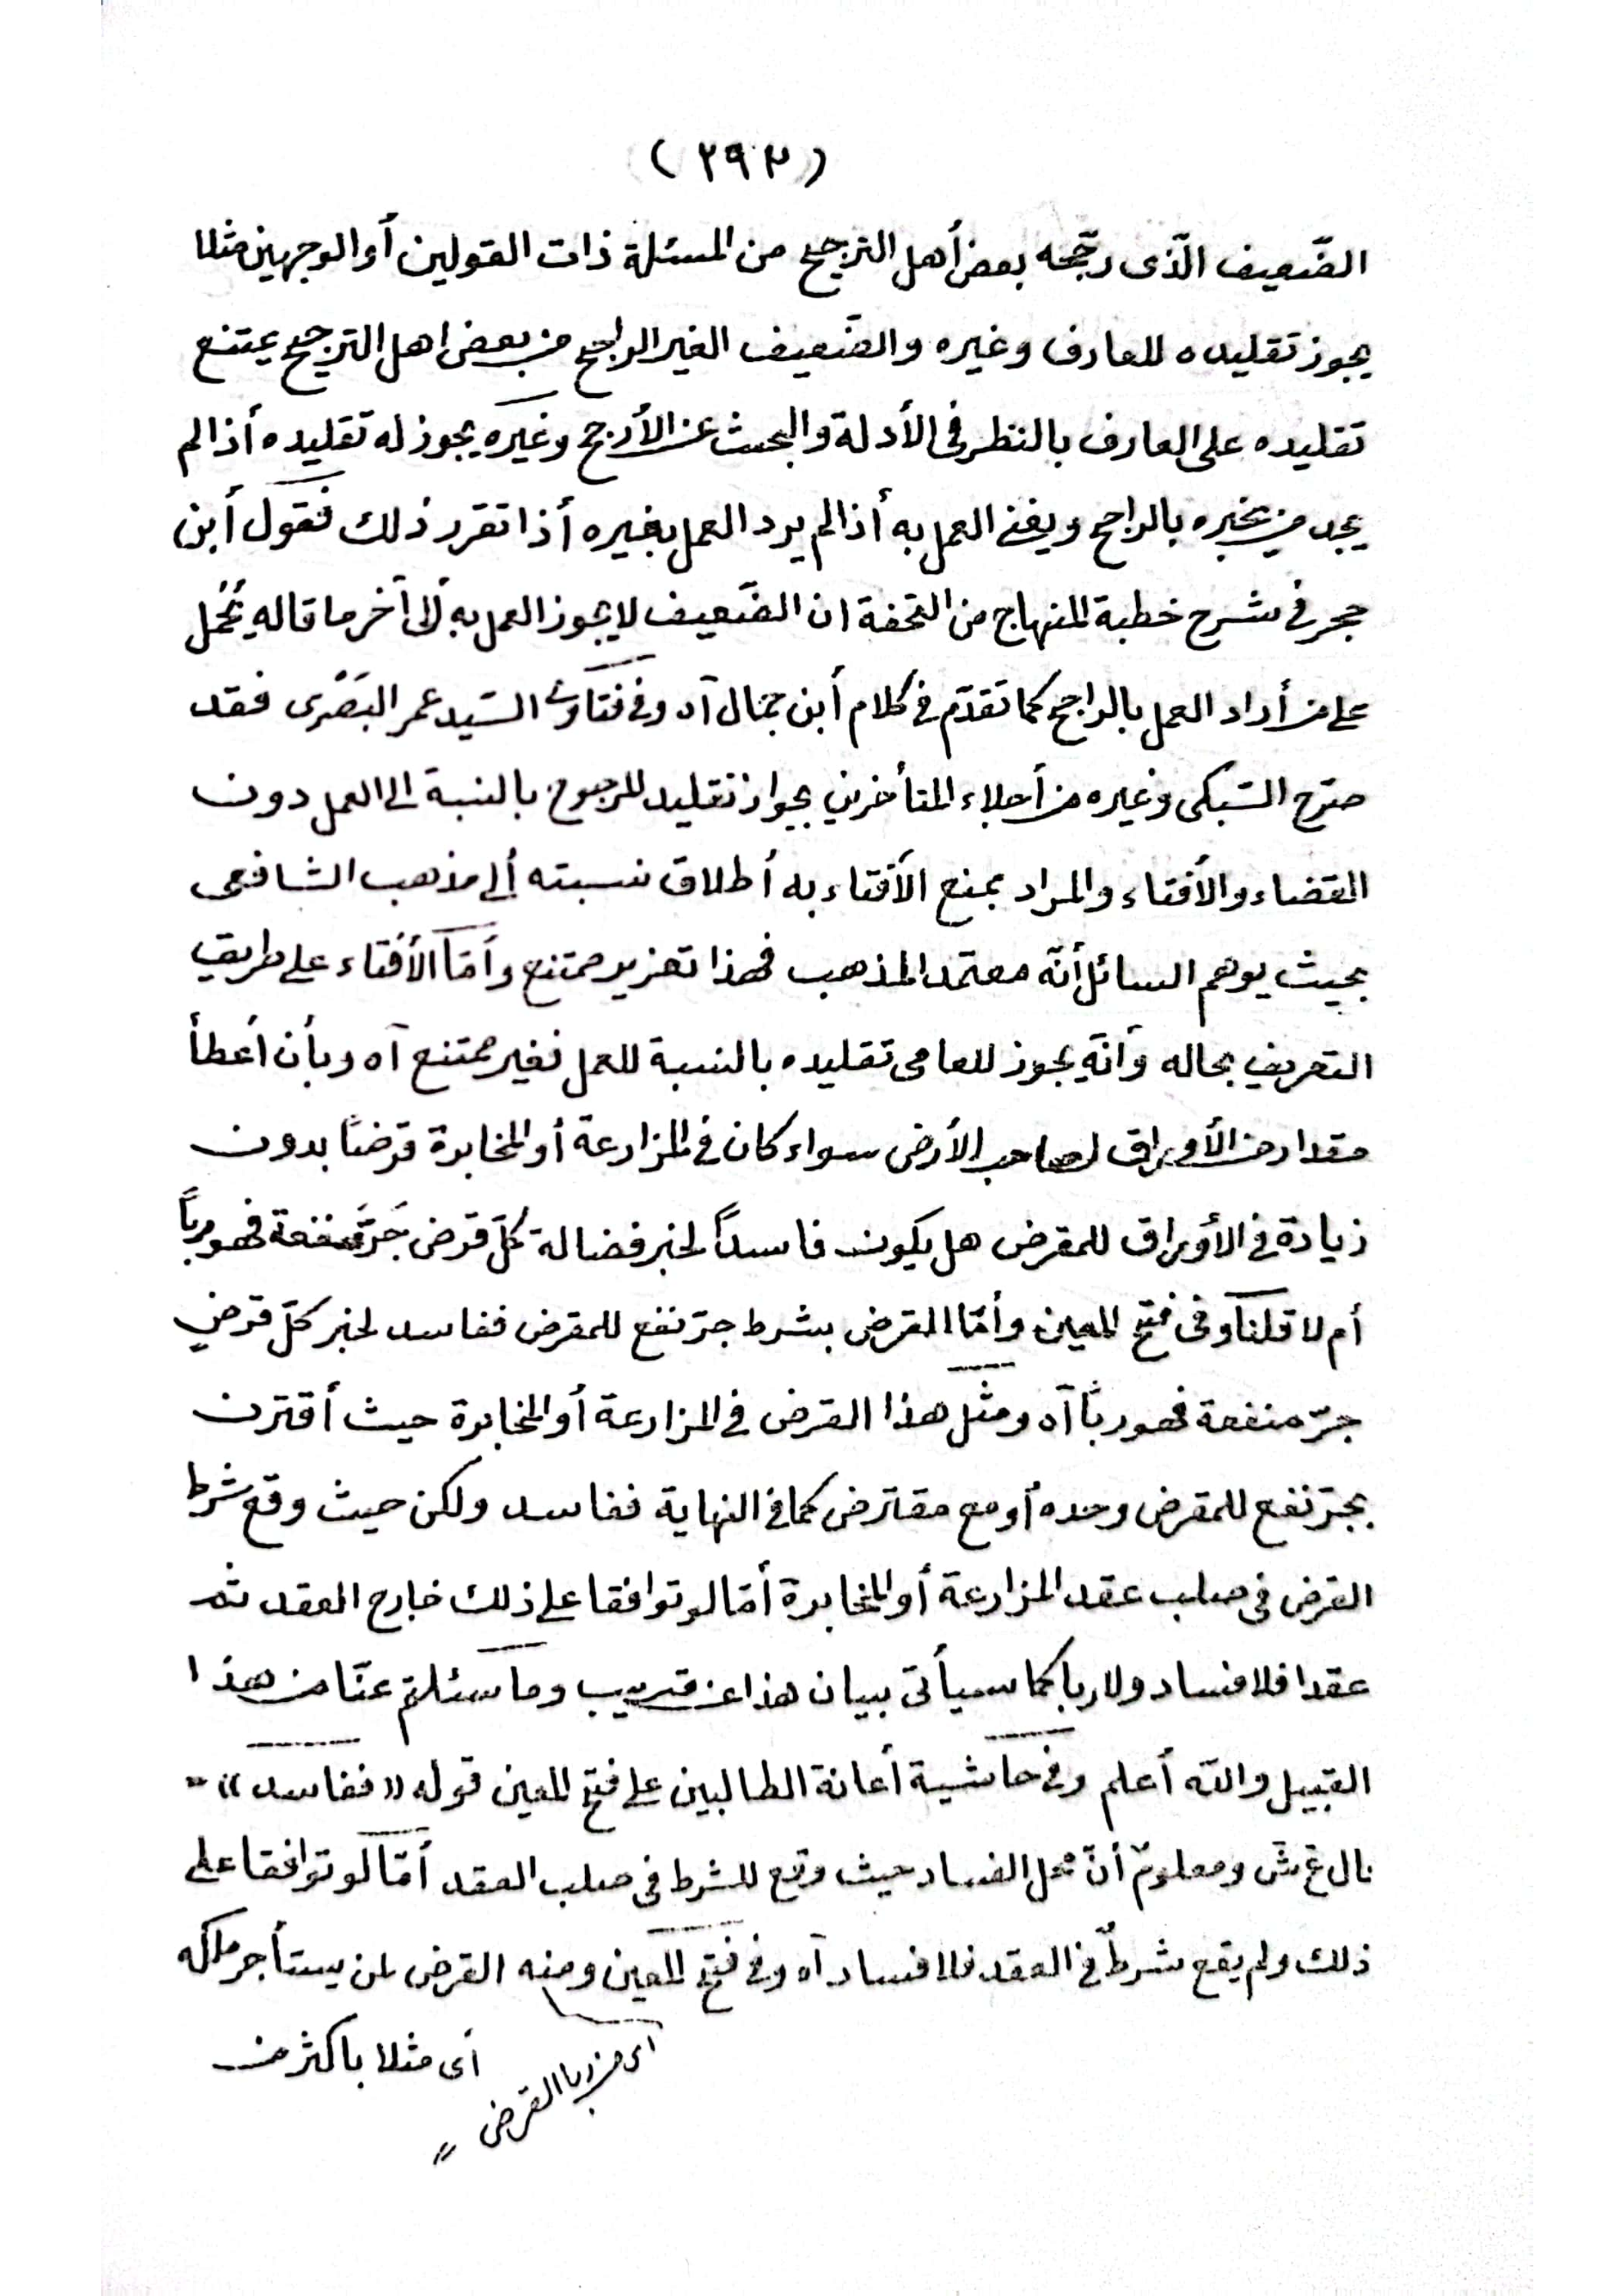 (٢٩٣)
الضّعيف الّذى رجّحه بعض أهل الترجيح من المسئلة ذات القولين أو الوجهين مثلا
يجوز تقليده للعارف وغيره والضّعيف الغير الراجح من بعض اهل الترجيح يمتنع
تقليده على العارف بالنظر فى الأدلة والبحث عن الأرجح وغيره يجوز له تقليده أذا لم
يجد من يخبره بالراجح ويفى العمل به أذا لم يرد العمل بغيره أذا تقرر ذلك فقول أبن
حجر فى شرح خطبة المنهاج من التحفة ان الضّعيف لا يجوز العمل به ألى آخر ما قاله يُحمل
على من أراد العمل بالراجح كما تقدّم فى كلام أبن جمال آه وفى فتاوى السّيد عمر البَصْرى فقد
صرّح السّبكى وغيره من أجلاء المتأخرين بجواز تقليد المرجوح بالنسبة الى العمل دون
القضاء والأفتاء والمراد بمنع الأفتاء به أطلاق نسبته ألى مذهب الشافعى
بحيث يوهم السائل أنّه معتمد المذهب فهذا تعزير ممتنع وأمّا الأفتاء على طريق
التعريف بحاله وأنّه يجوز للعامى تقليده بالنسبة للعمل فغير ممتنع آه وبأن أعطأ
مقدار من الأوراق لصاحب الأرض سواء كان فى المزارعة أو المخابرة قرضًا بدون
زيادة فى الأوراق للمقرض هل يكون فاسدًا لخبر فضالة كلّ قرض جَرَّ منفعة فهو ربًا
أم لا قلنا وفى فتح المعين وأمّا القرض بشرط جرّ نفع للمقرض ففاسد لخبر كلّ قرض
جرّ منفعة فهو ربًا آه ومثل هذا القرض فى المزارعة أو المخابرة حيث أقترن
بجرّ نفع للمقرض وحده أو مع مقترض كما فى النهاية ففاسد ولكن حيث وقع شرط
القرض فى صلب عقد المزارعة أو المخابرة أمّا لو توافقا على ذلك خارج العقد ثم
عقدا فلا فساد ولا ربا كما سيأتى بيان هذا عن قريب وما سئلتم عنّا من هذا
القبيل والله أعلم وفى حاشية أعانة الطالبين على فتح المعين قوله «ففاسد»
قال ع ش ومعلومٌ أنّ محل الفساد حيث وقع الشرط فى صلب العقد أمّا لو توافقا على
ذلك ولم يقع شرطٌ فى العقد فلا فساد آه وفى فتح المعين ومنه القرض لمن يستأجر ملكه
أى من ربا القرض
أى مثلا باكثر من